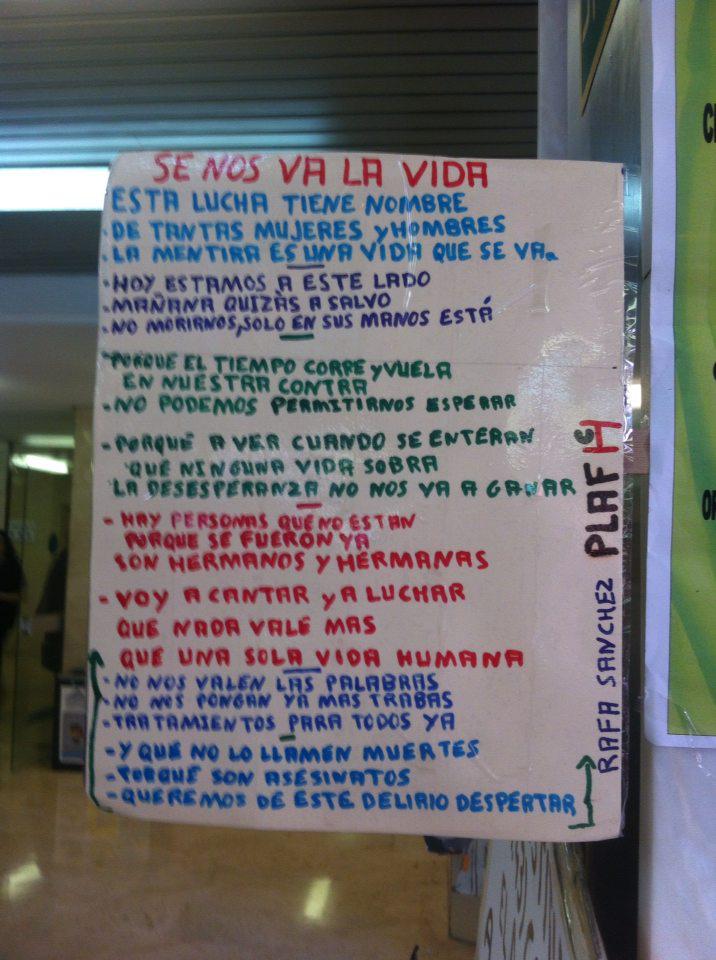 SE NOS VA LA VIDA
ESTA LUCHA TIENE NOMBRE
- DE TANTAS MUJERES y HOMBRES
- LA MENTIRA ES UNA VIDA QUE SE VA.
- HOY ESTAMOS A ESTE LADO
- MAÑANA QUIZÁS A SALVO
- NO MORIRNOS, SOLO EN SUS MANOS ESTÁ
- PORQUE EL TIEMPO CORRE y VUELA
EN NUESTRA CONTRA
- NO PODEMOS PERMITIRNOS ESPERAR
- PORQUÉ A VER CUANDO SE ENTERAN
QUE NINGUNA VIDA SOBRA
LA DESESPERANZA NO NOS VA A GANAR
- HAY PERSONAS QUE NO ESTAN
PORQUE SE FUERON YA
SON HERMANOS Y HERMANAS
- VOY A CANTAR y A LUCHAR
QUE NADA VALE MAS
QUE UNA SOLA VIDA HUMANA
- NO NOS VALEN LAS PALABRAS
- NO NOS PONGAN YA MAS TRABAS
- TRATAMIENTOS PARA TODOS YA
- Y QUE NO LO LLAMEN MUERTES
- PORQUÉ SON ASESINATOS
- QUEREMOS DE ESTE DELIRIO DESPERTAR
RAFA SANCHEZ PLAFHC